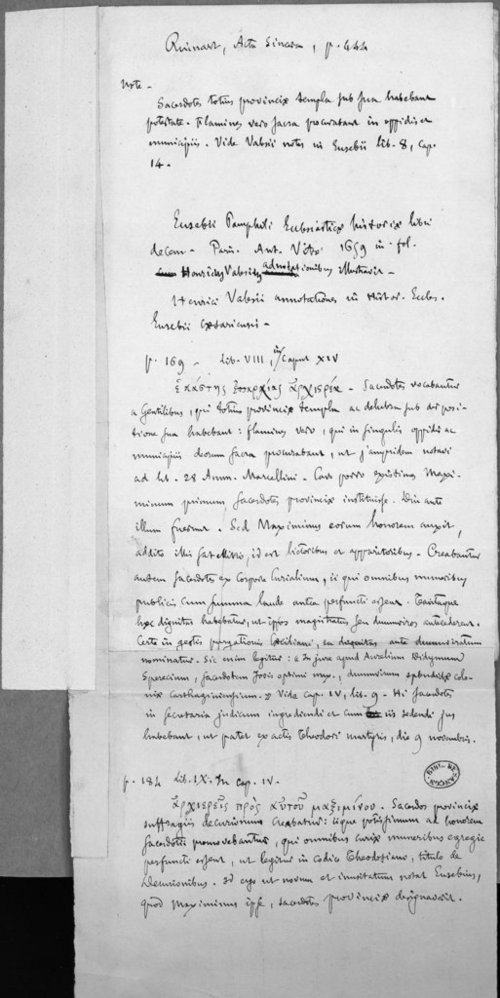 Ruinart, Acta Sincera, p. 444
Note -
Sacerdotes totius provinciæ templa sub sua habebant
potestate. Flamines vero sacra procurabant in oppidis et
municipiis. Vide Valesii notas in Eusebii lib. 8, cap.
14.
Eusebii Pamphili Ecclesiasticæ historiæ libri
decem - Paris. Ant. Vitré 1659 in-fol.
Henricus Valesius adnotationibus illustravit -
Henrici Valesii annotationes in Histor. Eccles.
Eusebii Cæsariensis -
p. 169 - lib. VIII, in Caput XIV
ἑκάστης ἐπαρχίας ἀρχιερέα - Sacerdotes vocabantur
a Gentilibus, qui totius provinciæ templa ac delubra sub dispositione
sua habebant : flamines vero, qui in singulis oppidis ac
municipiis deorum sacra procurabant, ut jampridem notavi
ad lib. 28 Amm. Marcellini. Cave porro existimes Maximinum
primum, sacerdotes provinciæ instituisse. Diu ante
illum fuerunt. Sed Maximinus eorum honorem auxit,
addito illis satellitio, id est lictoribus et apparitoribus. Creabantur
autem sacerdotes ex corpore Curialium, ii qui omnibus muneribus
publicis cum summa laude antea perfuncti essent. Tantaque
hæc dignitas habebatur, ut ipsos magistratus seu duumviros antecederet.
Certe in gestis purgationis Cæciliani, ea dignitas ante duumviratum
nominatur. Sic enim legitur : « In jure apud Aurelium Didymum
Speretium, sacerdotem Jovis optimi max., duumvirum splendidæ coloniæ
Carthaginiensium. » Vide cap. IV, lib. 9. Hi sacerdotes
in secretaria judicum ingrediendi et cum iis sedendi jus
habebant, ut patet ex actis Theodori martyris, die 9 novembris.
p. 184 lib. IX. In cap. IV.
ἀρχιερεῖς πρὸς αὐτοῦ μαξιμίνου. Sacerdos provinciæ
suffragiis decurionum creabatur : iique potissimum ad honorem
sacerdotii promovebantur, qui omnibus curiæ muneribus egregie
perfuncti essent, ut legitur in codice Theodosiano, titulo de
Decurionibus. Id ergo ut novum et inusitatum notat Eusebius,
quod Maximinus ipse, sacerdotes provinciæ designaverit.